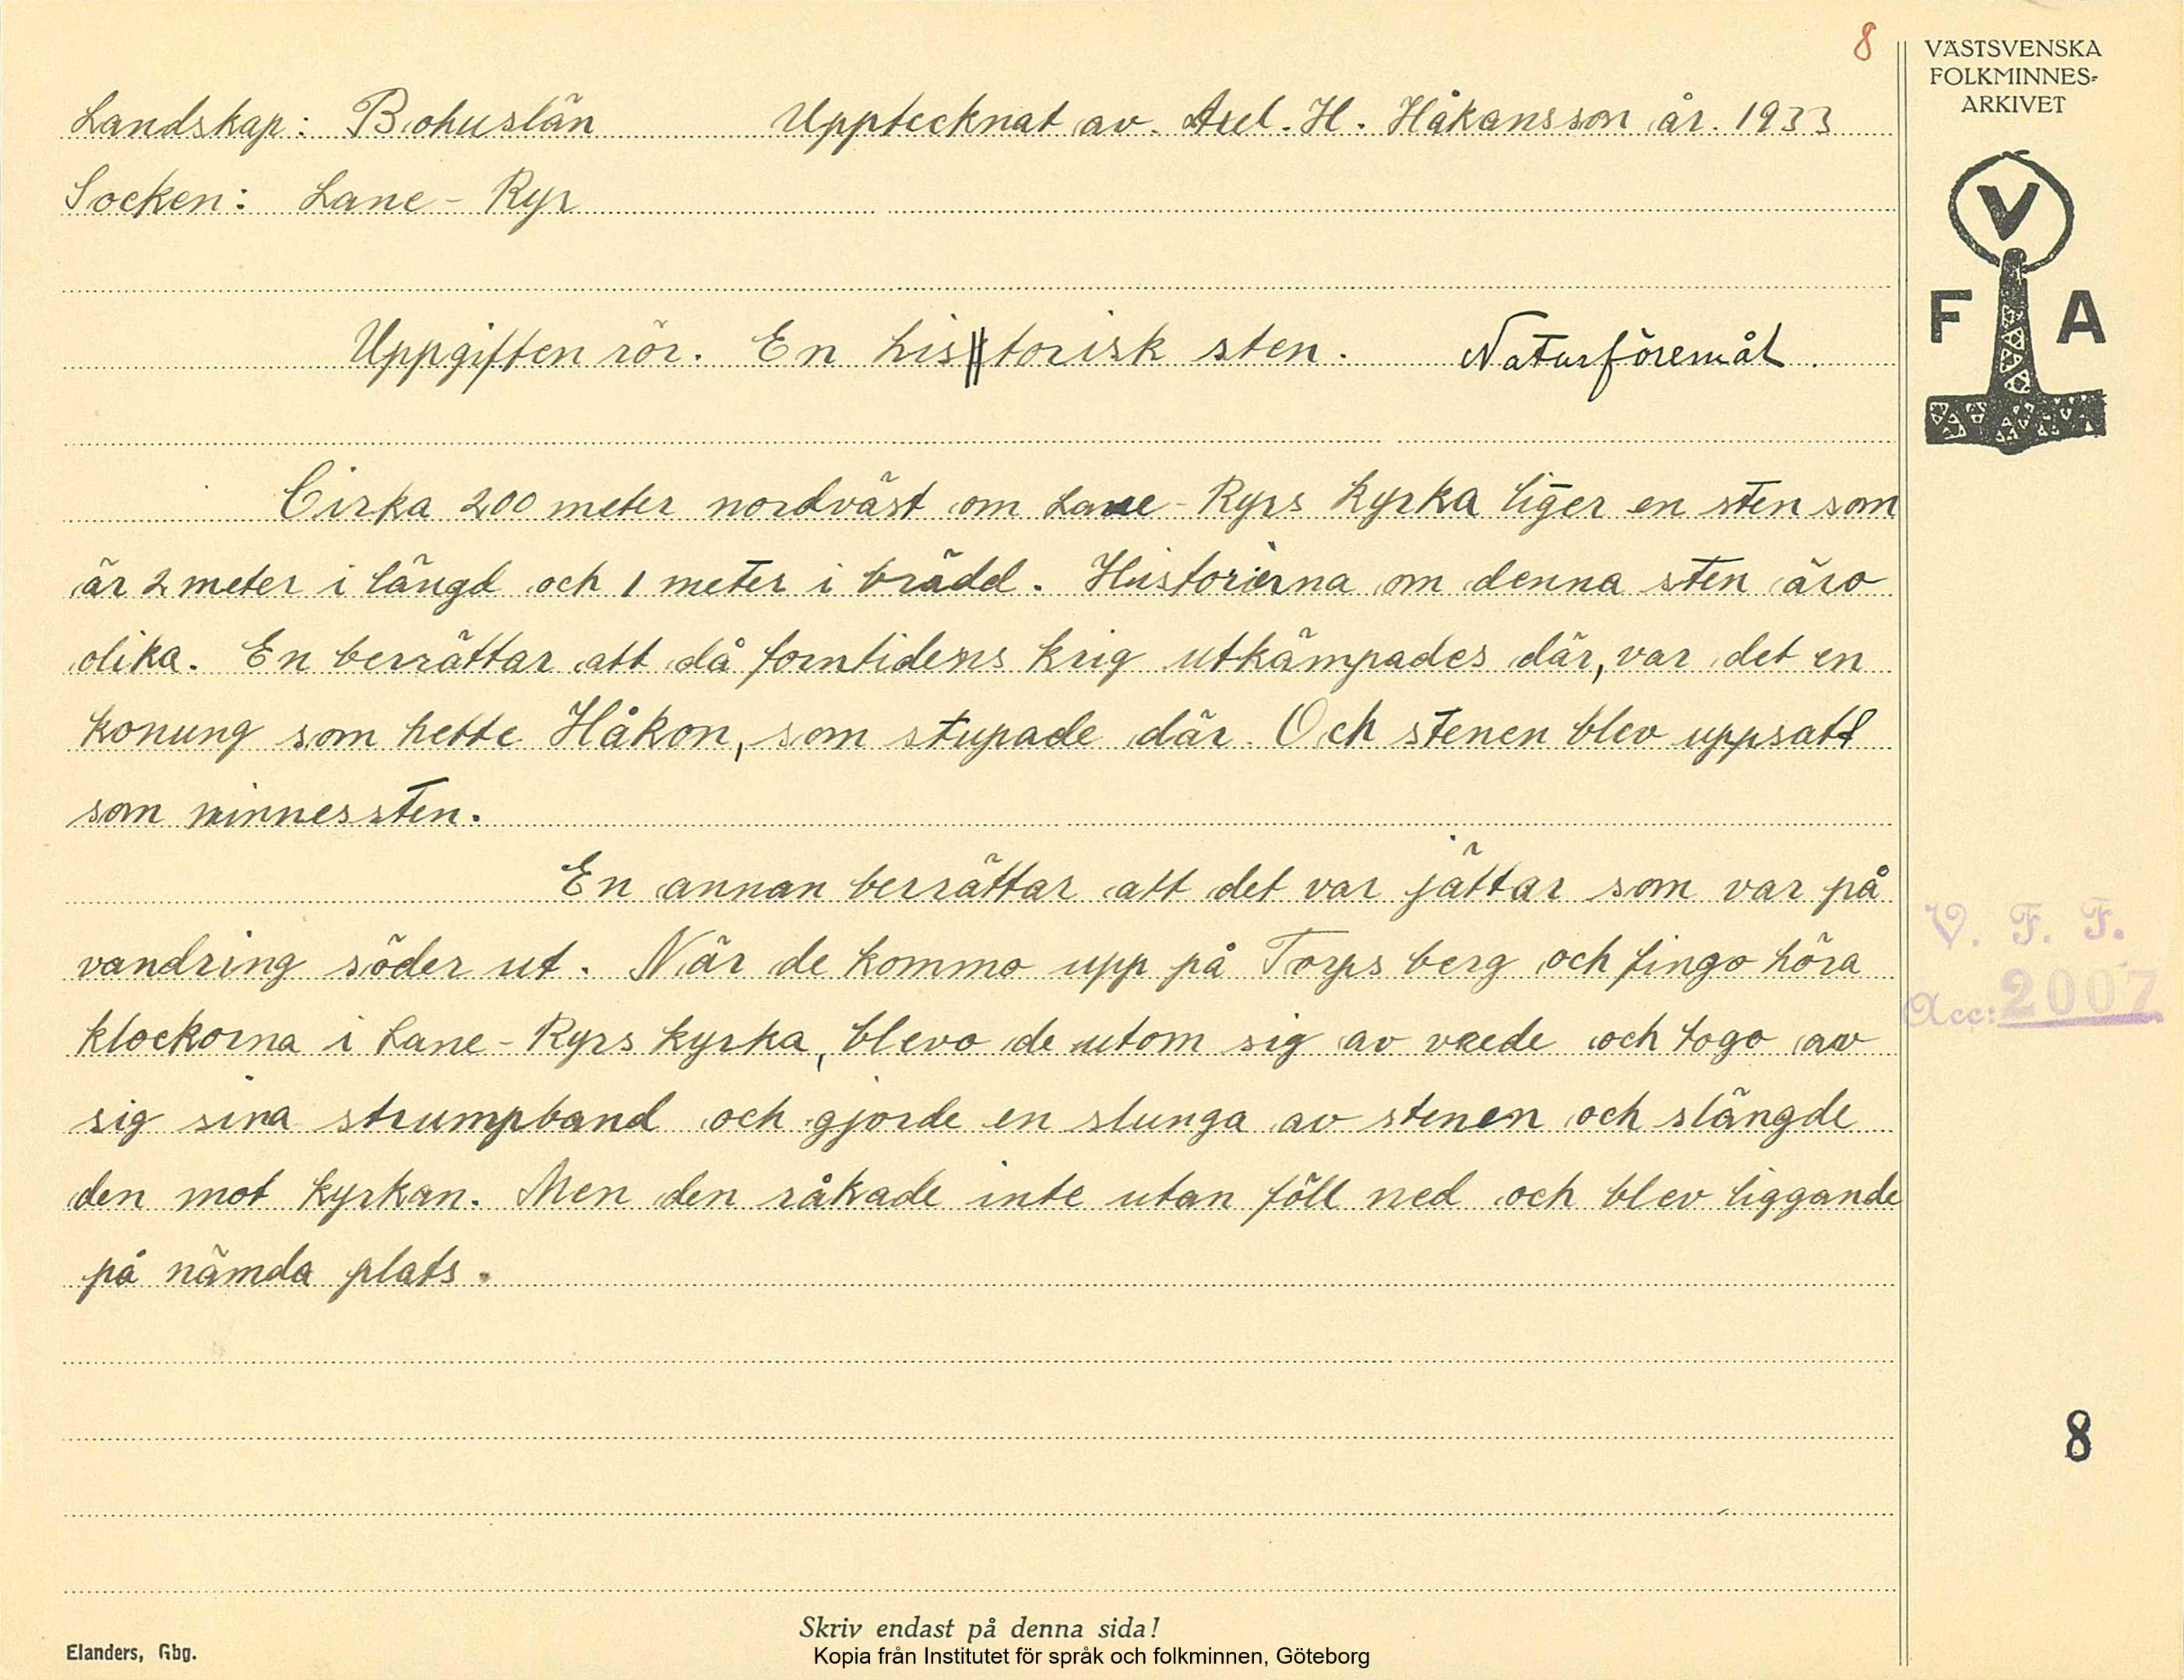 8
VÄSTSVENSKA
FOLKMINNES-
ARKIVET
Landskap: Bohuslän Upptecknat av. Axel. H. Håkansson år. 1933
Socken: Lane-Ryr
V
F A
Uppgiften rör. En historisk sten. Naturföremål.
Cirka 200 meter nordväst om Lane-Ryrs kyrka liger en sten som
är 2 meter i längd och 1 meter i brädd. Historierna om denna sten äro
olika. En berrättar att då forntidens krig utkämpades där, var det en
konung som hette Håkon, som stupade där. Och stenen blev uppsatt
som minnessten.
En annan berrättar att det var jättar som var på
vandring söder ut. När de kommo upp på Torps berg och fingo höra
klockorna i Lane-Ryrs kyrka, blevo de utom sig av vrede och togo av
sig sina strumpband och gjorde en slunga av stenen och slängde
den mot kyrkan. Men den råkade inte utan föll ned och blev liggande
på nämda plats.
V. F. F.
Acc: 2007
8
Skriv endast på denna sida!
Elanders, Gbg.
Kopia från Institutet för språk och folkminnen, Göteborg